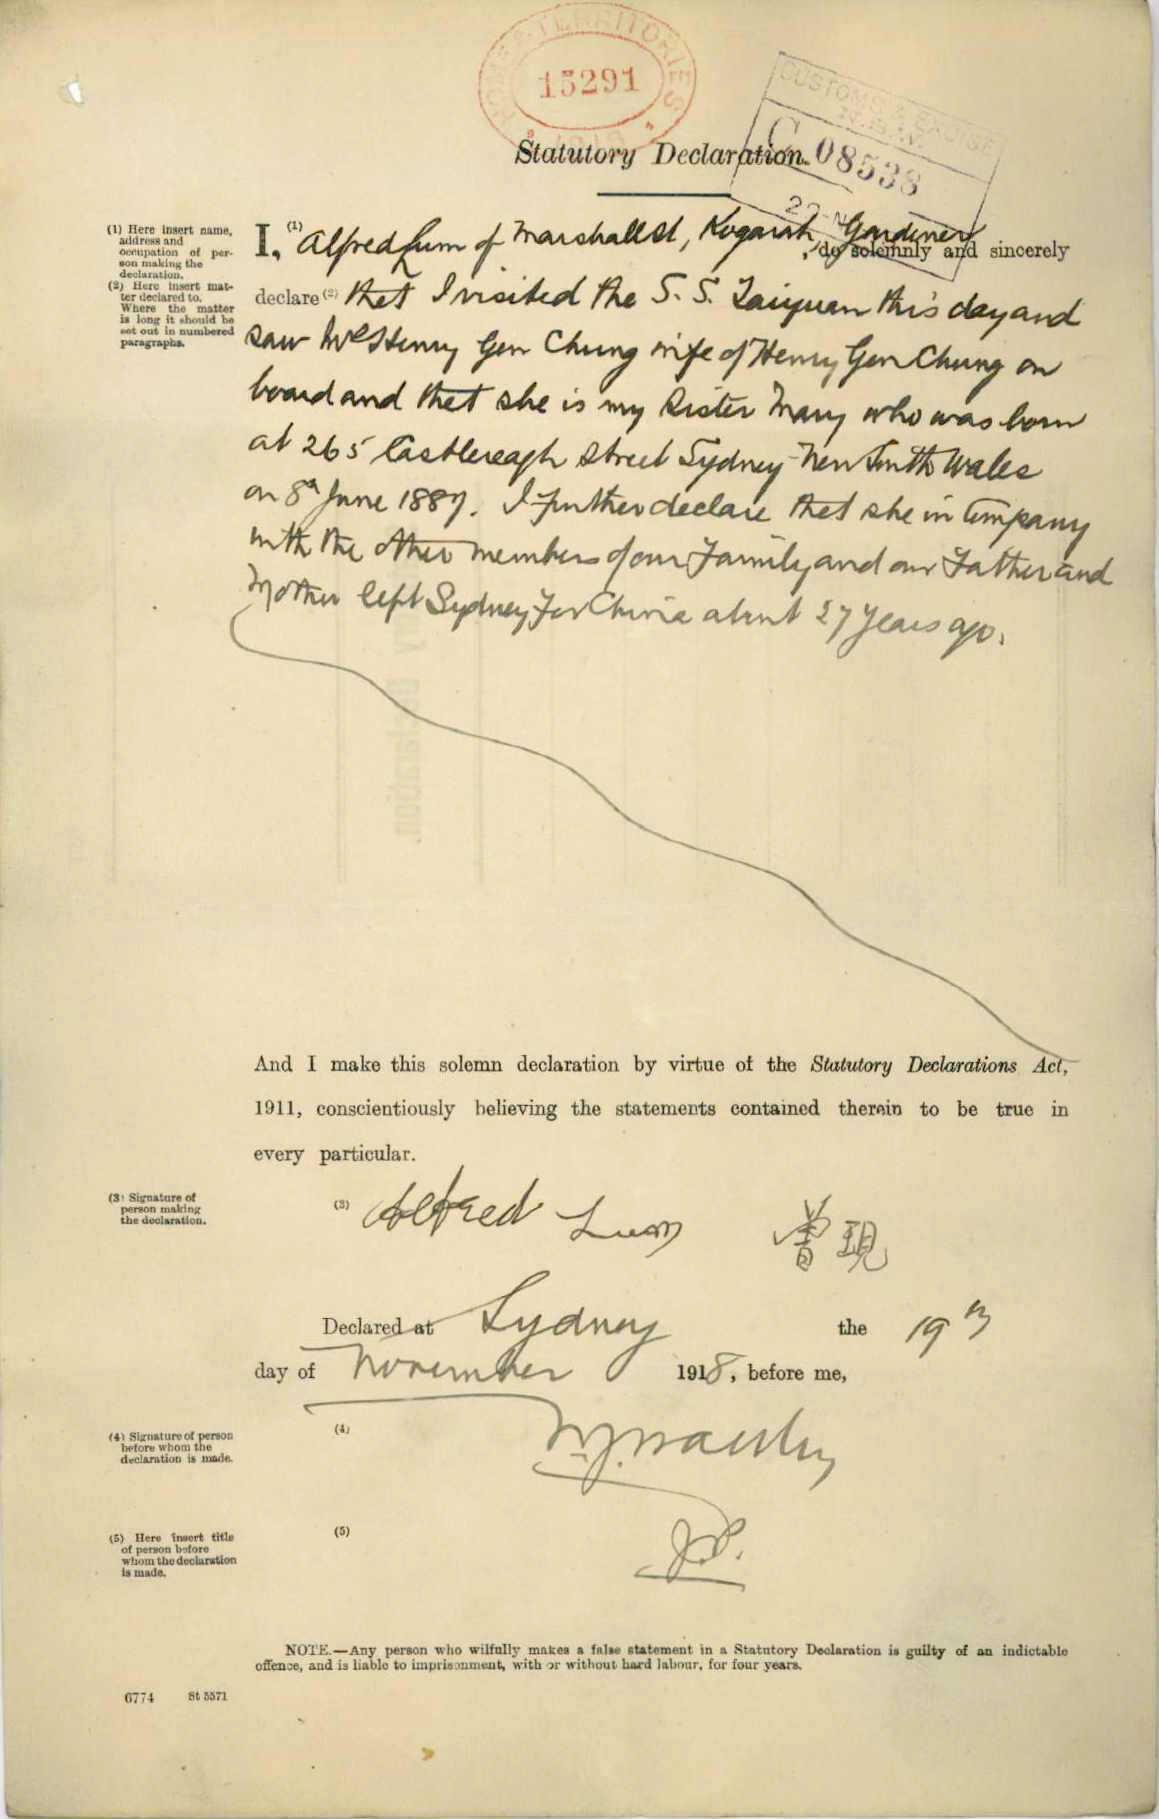 HOME & TERRITORIES
15291
1918
CUSTOMS & EXCISE
N.S.W.
C 08538
Statutory Declaration.
(1) Here insert name,
address and
occupation of per-
son making the
declaration.
(2) Here insert mat-
ter declared to.
Where the matter
is long it should be
set out in numbered
paragraphs.
I, (1) Alfred Lum of Marshall St, Kogarah, Gardiner, do solemnly and sincerely
declare (2) that I visited the S. S. Taiyuan this day and
saw Mrs Henry Gen Chung wife of Henry Gen Chung on
board and that she is my Sister Mary who was born
at 265 Castlereagh Street Sydney New South Wales
on 8th June 1887. I further declare that she in Company
with the other members of our Family and our Father and
Mother left Sydney for China about 27 years ago.
And I make this solemn declaration by virtue of the Statutory Declarations Act,
1911, conscientiously believing the statements contained therein to be true in
every particular.
(3) Signature of
person making
the declaration.
(3) Alfred Lum 曾現
Declared at Sydney the 19th
day of November 1918, before me,
(4) Signature of person
before whom the
declaration is made.
(4)
(5) Here insert title
of person before
whom the declaration
is made.
(5) J.P.
NOTE.—Any person who wilfully makes a false statement in a Statutory Declaration is guilty of an indictable
offence, and is liable to imprisonment, with or without hard labour, for four years.
6774 St 5571